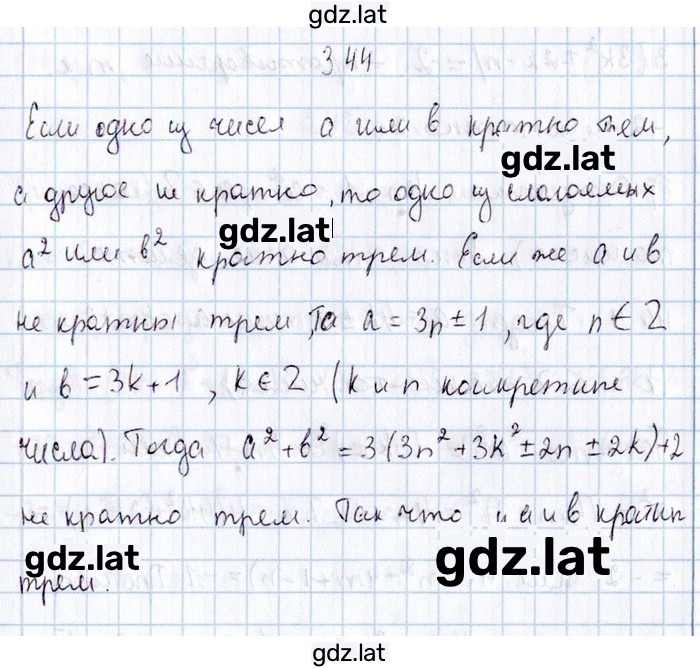 gdz.lat
3.44
Если одно из чисел а или в кратно трем,
gdz.lat
а другое не кратно, то одно из слагаемых
gdz.lat
a² или b² кратно трем. Если же а и в
не кратны трем, а = 3n ± 1, где n ∈ Z
и в = 3k+1, k ∈ Z (k и n конкретные
числа). Тогда a² + b² = 3(3n² + 3k² ± 2n ± 2k)+2
не кратно трем. Так что и а и в кратны
gdz.lat gdz.lat
трем.
gdz.lat